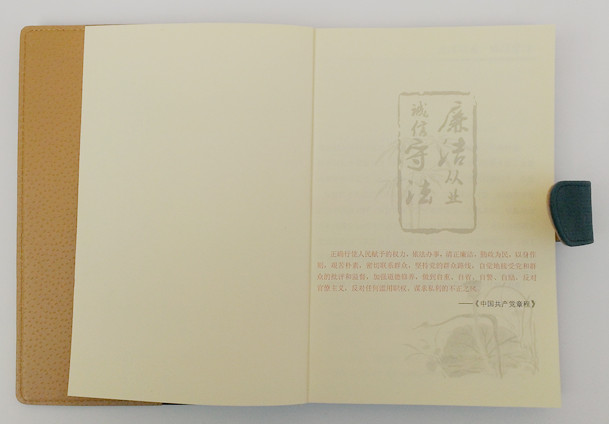 廉洁从业
诚信守法
正确行使人民赋予的权力，依法办事，清正廉洁，勤政为民，以身作
则，艰苦朴素，密切联系群众，坚持党的群众路线，自觉地接受党和群
众的批评和监督，加强道德修养，做到自重、自省、自警、自励，反对
官僚主义，反对任何滥用职权、谋求私利的不正之风。
——《中国共产党章程》